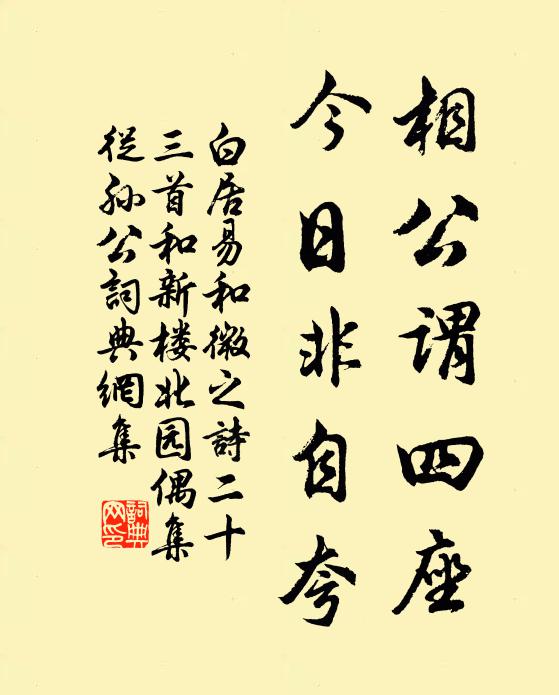 相公謂四座
今日非自夸
白居易和微之詩二十
三首和新楼北园偶集
從孙公詞典網集
詞典
网印